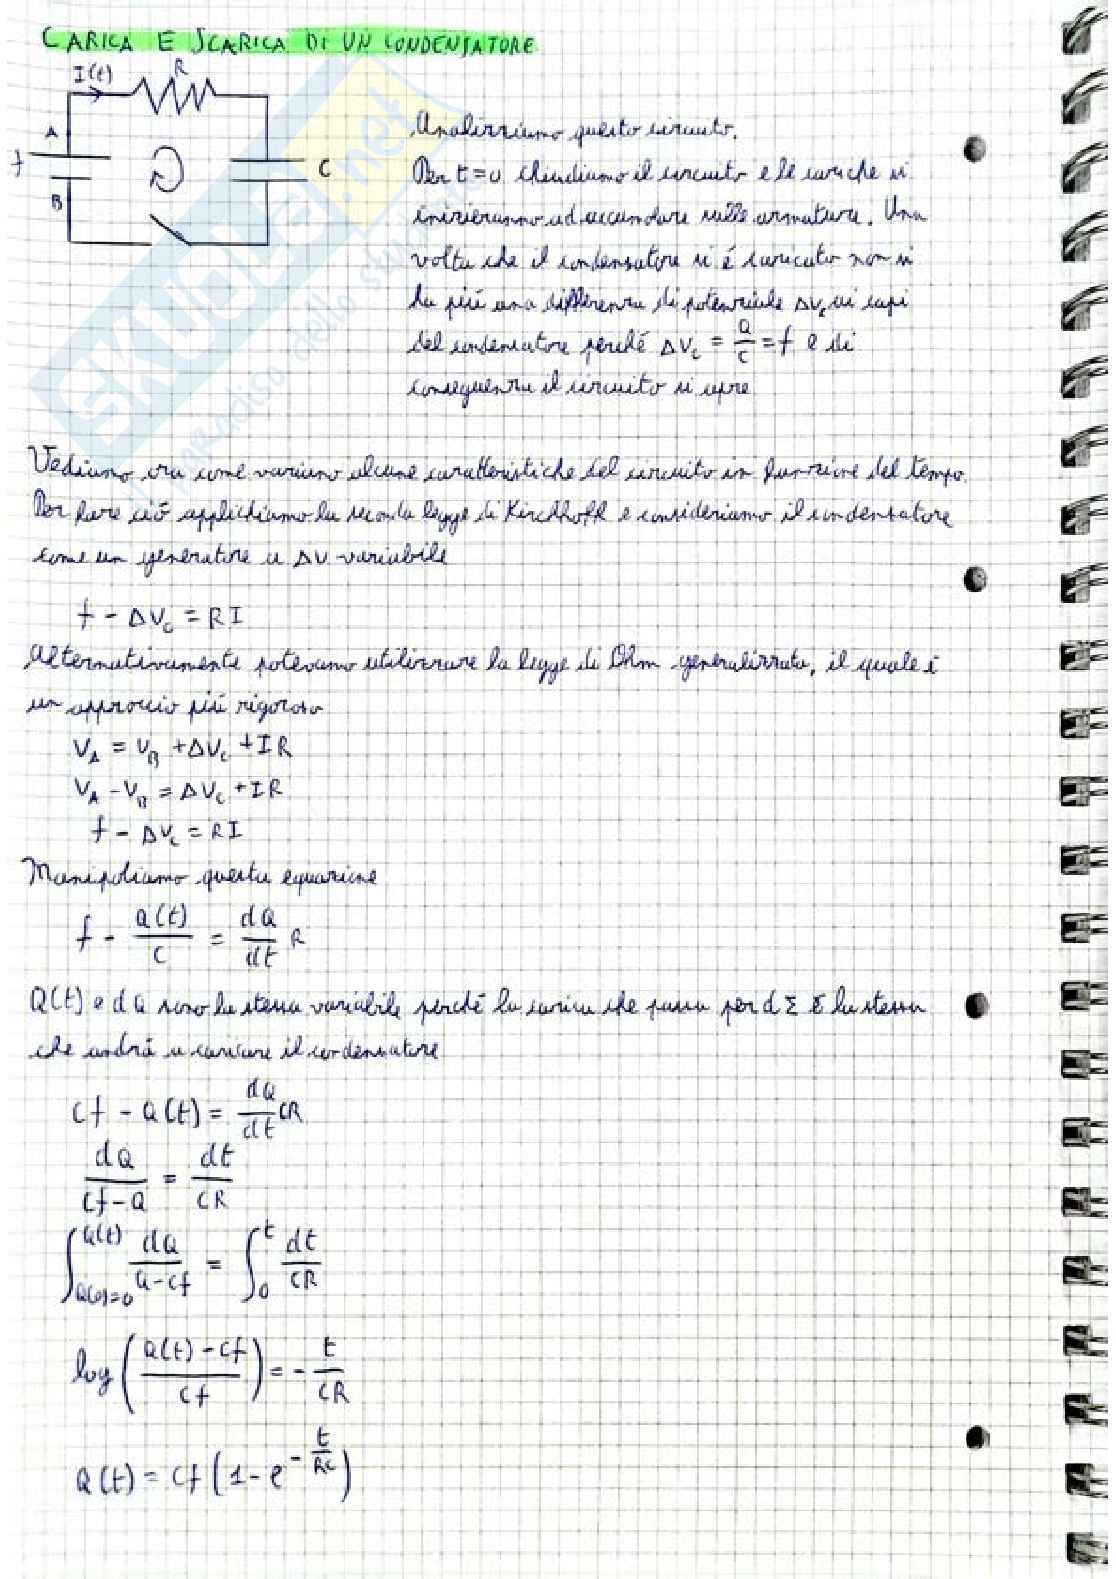 CARICA E SCARICA DI UN CONDENSATORE
I(t) R
A
f
B
C
Analizziamo questo circuito.
Per t=0 chiudiamo il circuito e le cariche si
inizieranno ad accumulare sulle armature. Una
volta che il condensatore si é caricato non si
ha piú una differenza di potenziale ΔV_c ai capi
del condensatore perché ΔV_c = Q/C = f e di
conseguenza il circuito si apre
Vediamo ora come variano alcune caratteristiche del circuito in funzione del tempo.
Per fare ció applichiamo la seconda legge di Kirchhoff e consideriamo il condensatore
come un generatore a ΔV variabile
f - ΔV_c = RI
Alternativamente potevamo utilizzare la legge di Ohm generalizzata, il quale é
un approccio piú rigoroso
V_A = V_B + ΔV_c + IR
V_A - V_B = ΔV_c + IR
f - ΔV_c = RI
Manipoliamo questa equazione
f - Q(t)/C = dQ/dt R
Q(t) e dQ sono la stessa variabile perché la carica che passa per dΣ é la stessa
che andrá a caricare il condensatore
Cf - Q(t) = dQ/dt CR
dQ/(Cf-Q) = dt/CR
∫_{Q(0)=0}^{Q(t)} dQ/(Q-Cf) = ∫_0^t dt/CR
log((Q(t)-Cf)/Cf) = - t/CR
Q(t) = Cf(1-e^{-t/RC})
SKUOLA.net
il paradiso dello studente